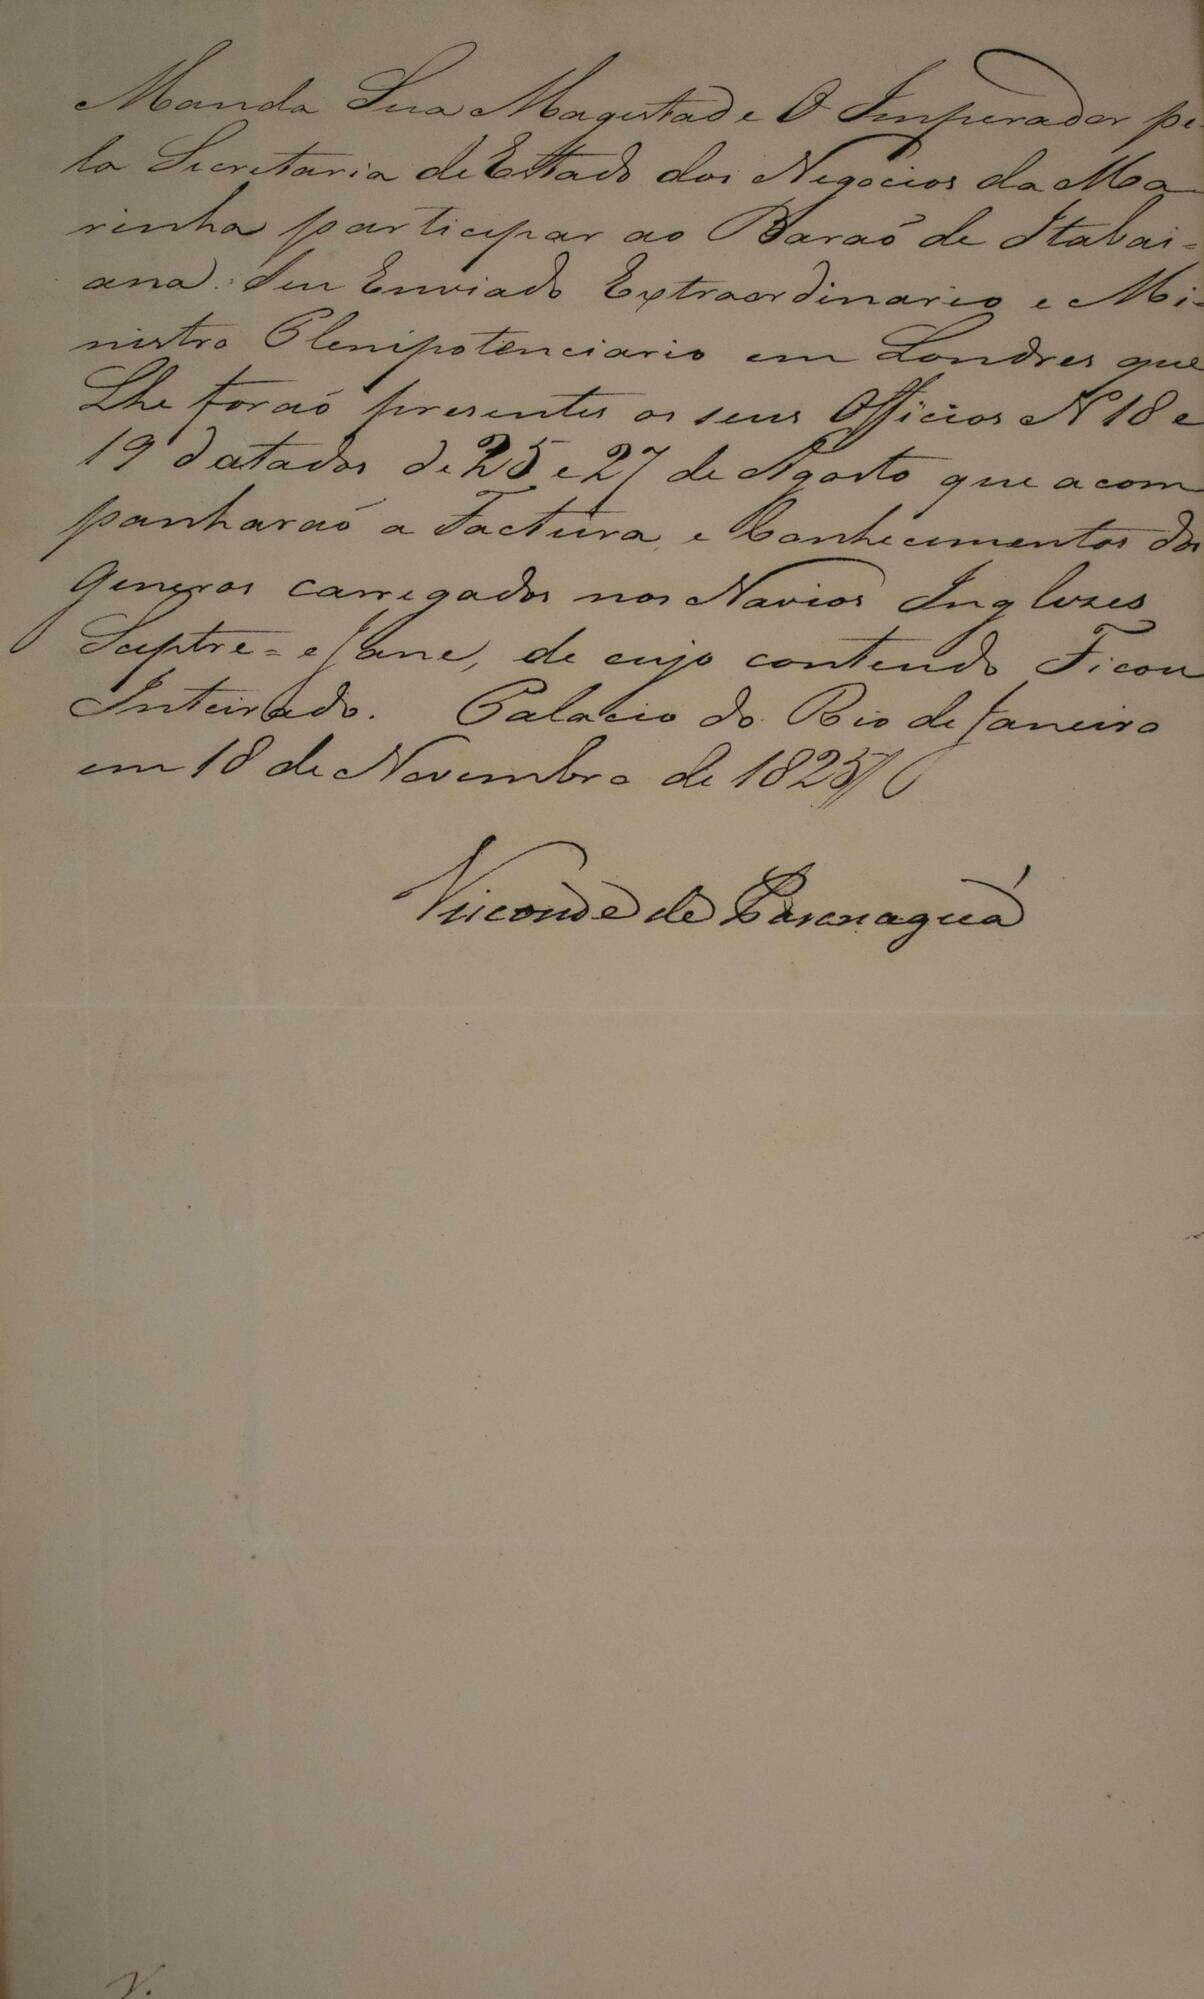 Manda Sua Magestade O Imperador pe-
la Secretaria de Estado dos Negocios da Ma-
rinha participar ao Baraõ de Itabai-
ana Seu Enviado Extraordinario e Mi-
nistro Plenipotenciario em Londres que
Lhe foraõ presentes os seus Officios N 18 e
19 datados de 25 e 27 de Agosto que acom
panharaõ a Factura, e Conhecimentos dos
Generos carregados nos Navios Inglezes
Sceptre = e Jane, de cujo contendo Ficou
Inteirado. Palacio do Rio de Janeiro
em 18 de Novembro de 1825
Visconde de Paranaguá